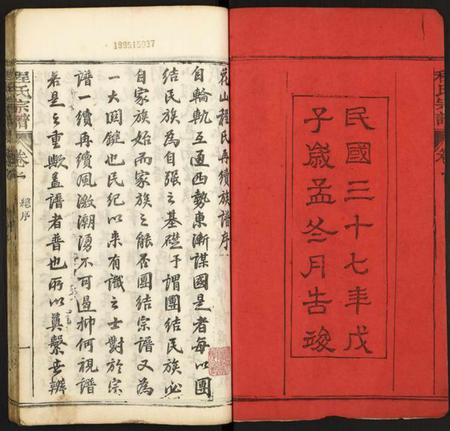 民國三十七年戊
子歲孟冬月告竣
程氏宗譜
卷一
花山程氏再續族譜序
自輪軌互通西勢東漸謀國是者每以團
結民族為自強之基礎于謂團結民族必
自家族始而家族之能否團結宗譜又為
一大関鍵也民紀以來有識之士對於宗
譜一續再續風激潮湧不可遏抑何視譜
若是之重歟蓋譜者普也所以奠繫世辨
程氏宗譜
卷一
總序
一
199515037